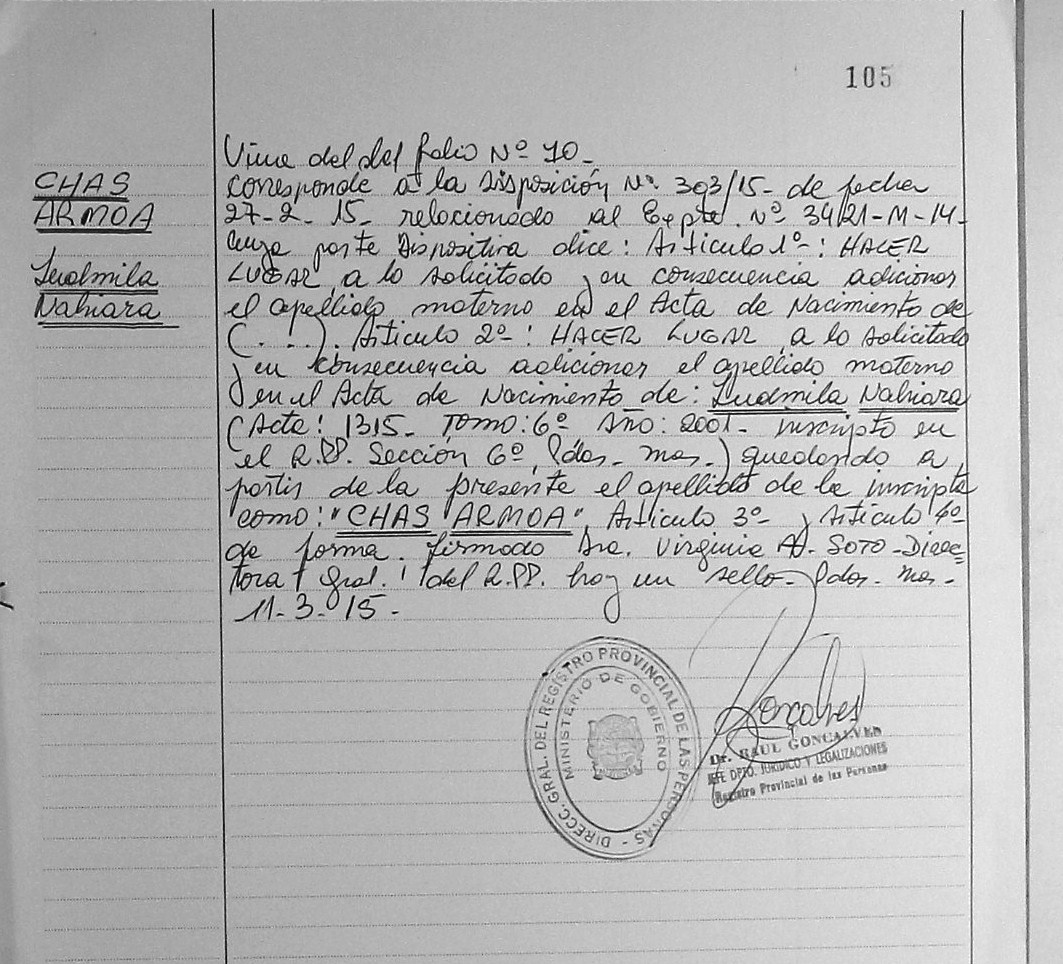 105
Viene del del folio Nº 10-
CHAS
ARMOA
Ludmila
Nahiara
corresponde a la Disposición Nº 303/15- de fecha
27-2-15- relacionado al Expte. Nº 3421-M-14-
cuya parte Dispositiva dice: Articulo 1º-: HACER
LUGAR a lo solicitado y en consecuencia adicionar
el apellido materno en el Acta de Nacimiento de
(...). Articulo 2º: HACER LUGAR a lo solicitado
y en consecuencia adicionar el apellido materno
en el Acta de Nacimiento de: Ludmila Nahiara
(Acta: 1315- Tomo: 6º Año: 2001- inscripto en
el R.PP. Sección 6º, Pdas- Mnes-) quedando a
partir de la presente el apellido de la inscripta
como: "CHAS ARMOA", Articulo 3º- y Articulo 4º-
de forma. Firmado Dra. Virginia A. SOTO-Direc-
tora Gral. del R.PP. hay un sello- Pdas- Mnes-
11-3-15-
DIRECC. GRAL. DEL REGISTRO PROVINCIAL DE LAS PERSONAS -
MINISTERIO DE GOBIERNO
Goncalves
Dr. RAUL GONCALVES
JEFE DPTO. JURIDICO Y LEGALIZACIONES
Registro Provincial de las Personas